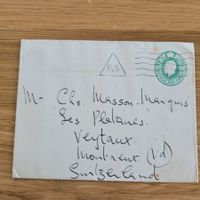 F.S
Mr Chs. Masson-Marquis
Les Platanes.
Veytaux.
Montreux
Switzerland